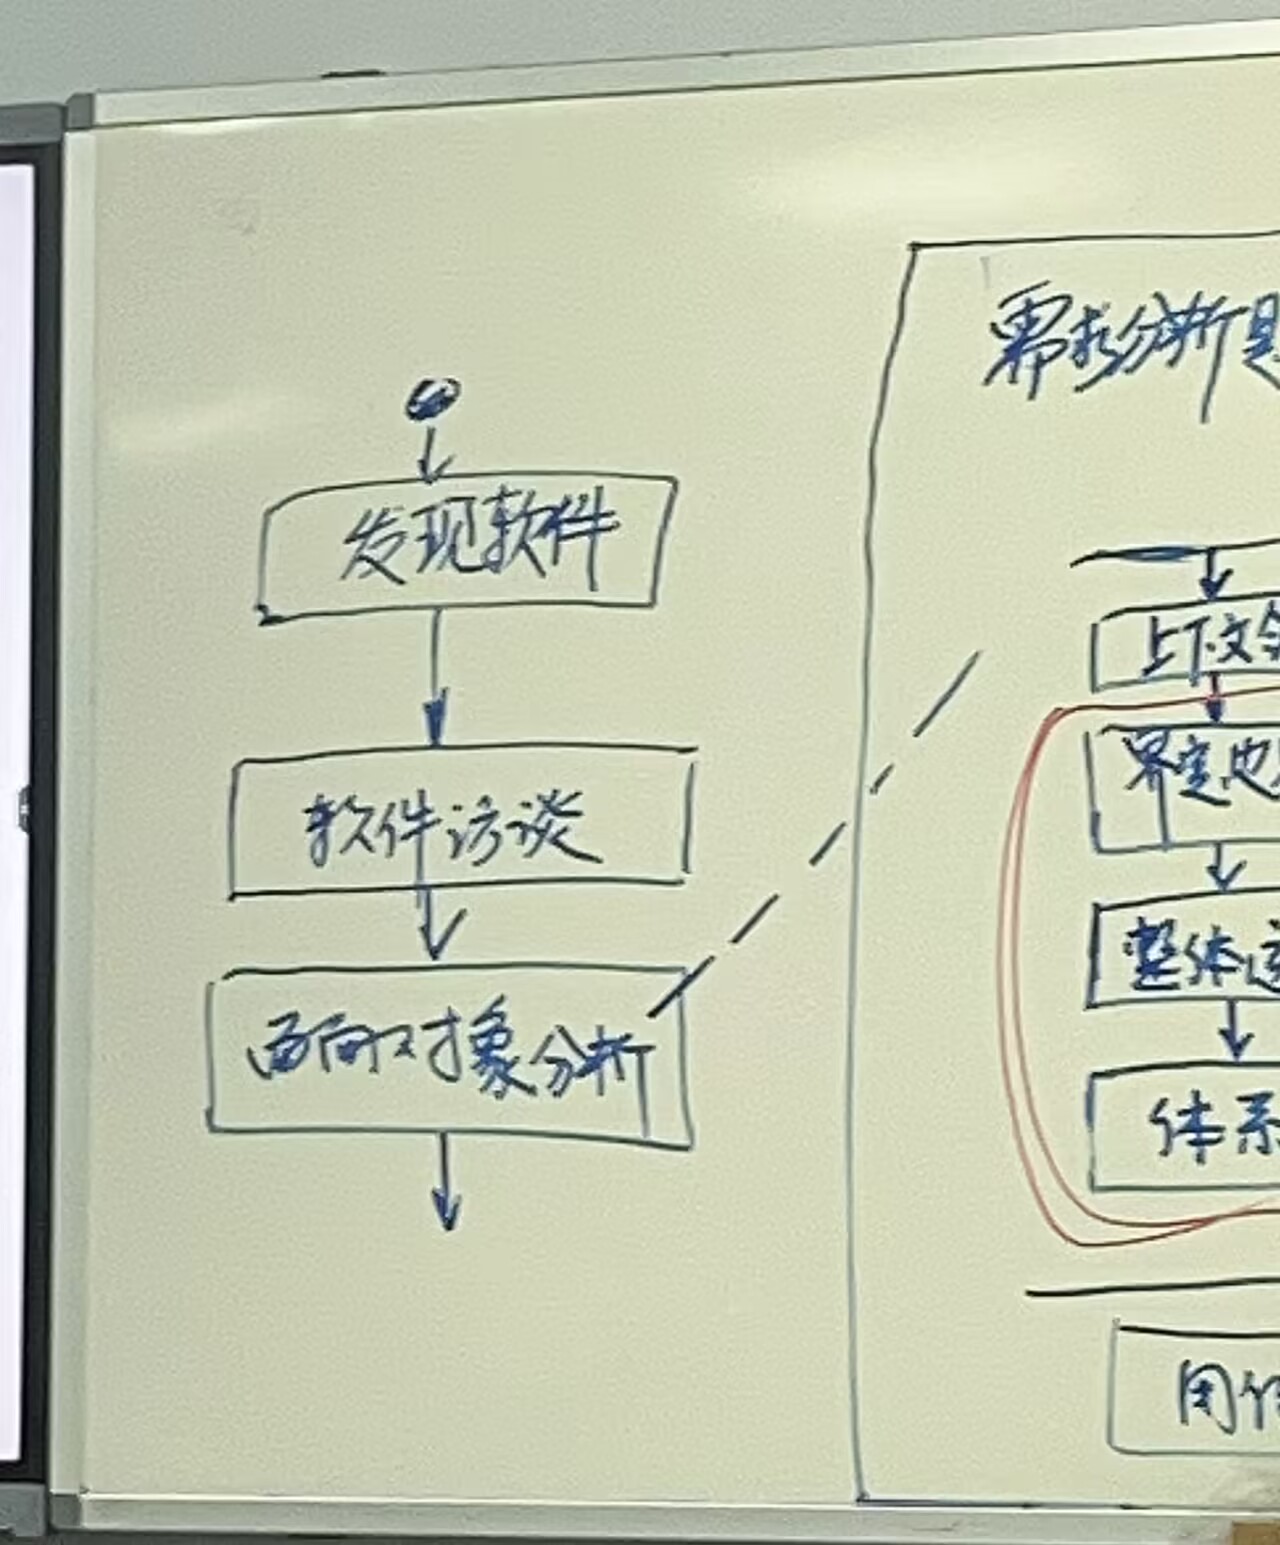 发现软件
软件访谈
面向对象分析
需求分析
上下文
界定
整体
体系
用